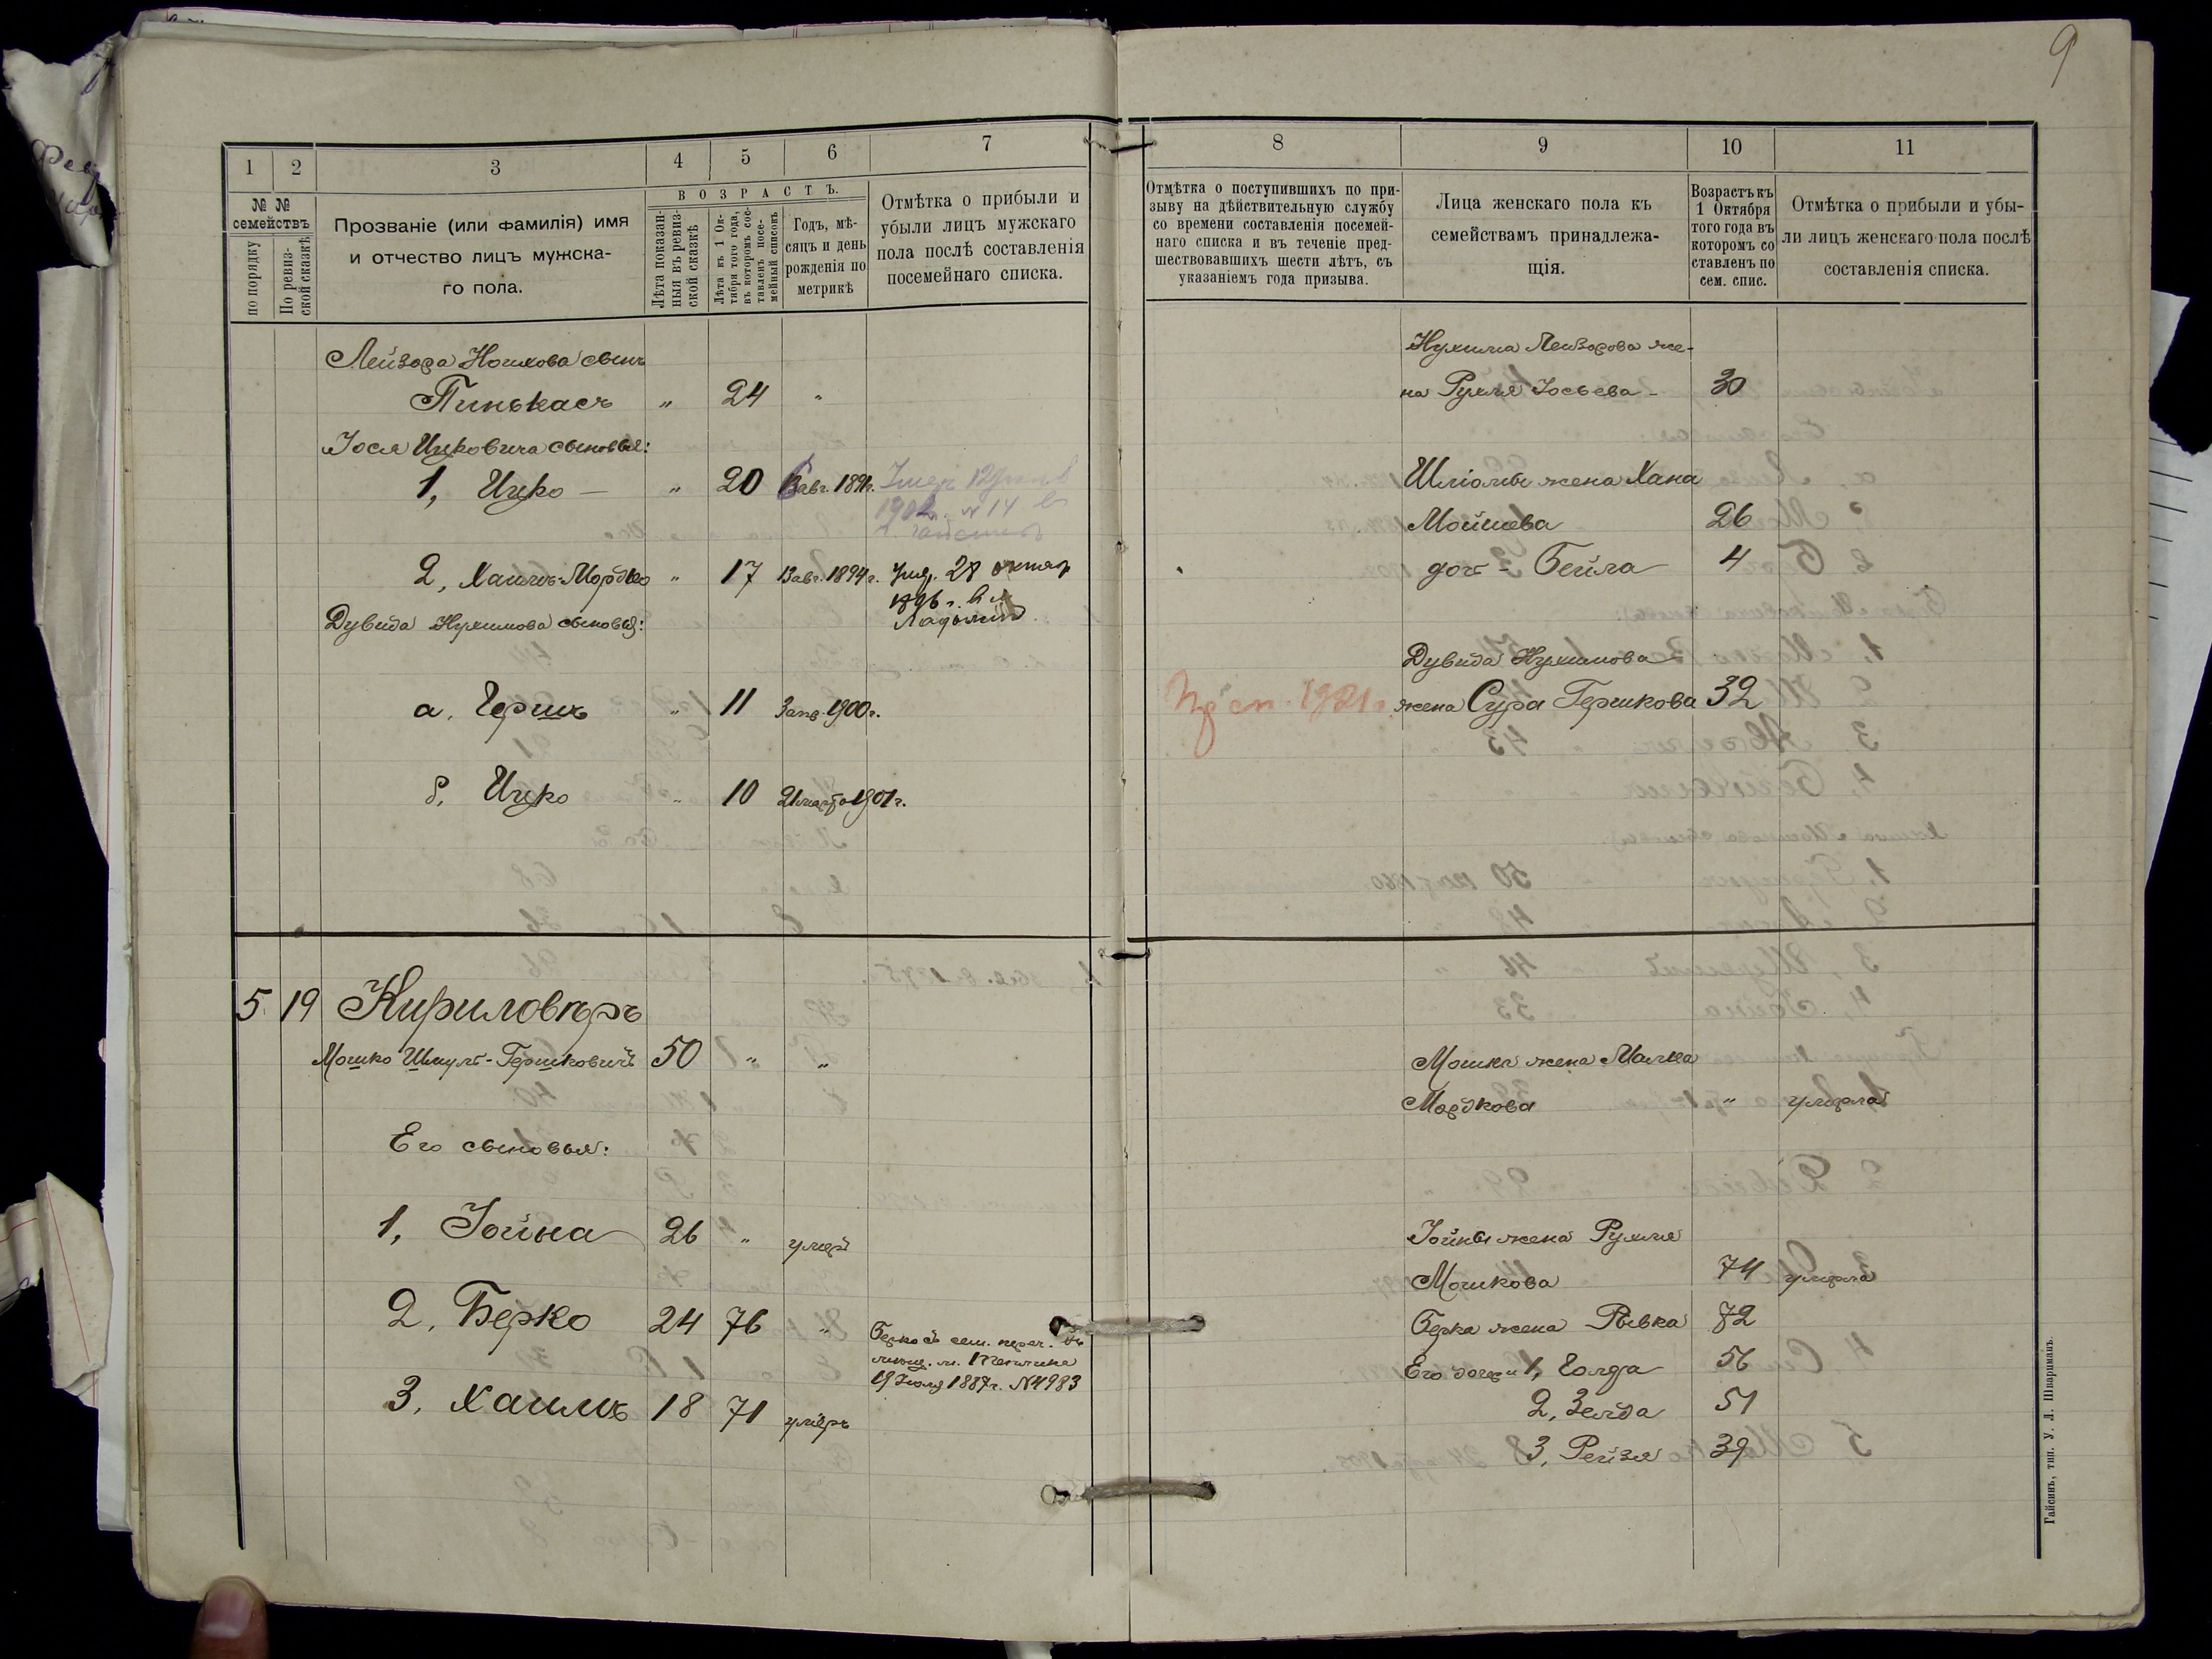 9
1
2
3
4
5
6
7
№ №
семействъ
по порядку
По ревиз-
ской сказкѣ
Прозваніе (или фамилія) имя
и отчество лицъ мужска-
го пола.
ВОЗРАСТЪ.
Лѣта показан-
ныя въ ревиз-
ской сказкѣ
Лѣта къ 1 Ок-
тября того года,
въ которомъ сос-
тавленъ посе-
мейный списокъ
Годъ, мѣ-
сяцъ и день
рожденія по
метрикѣ
Отмѣтка о прибыли и
убыли лицъ мужскаго
пола послѣ составленія
посемейнаго списка.
Лейзора Ношкова сынъ
Пинькасъ " 24 "
Іося Ицковича сыновья:
1, Ицко — " 20 авг. 1891г.
1902г. № 14 в
2, Хаимъ-Мордко " 17 13 авг. 1894г. умер. 28 октяб
1896 г. в м.
Ладыжин
Дувида Нухимова сыновья:
а, Гершъ " 11 3 апр. 1900г.
б, Ицко " 10 21 марта 1901г.
5 19 Кириловкеръ
Мошко Шмуль-Гершковичъ 50 " "
Его сыновья:
1, Іойна 26 " умеръ
2, Берко 24 76 " Берко съ сем. переч. въ
мѣщ. м. Тепликa
19 Іюля 1887г. № 4983
3, Хаимъ 18 71 умеръ
8
9
10
11
Отмѣтка о поступившихъ по при-
зыву на дѣйствительную службу
со времени составленія посемей-
наго списка и въ теченіе пред-
шествовавшихъ шести лѣтъ, съ
указаніемъ года призыва.
Лица женскаго пола къ
семействамъ принадлежа-
щія.
Возрастъ къ
1 Октября
того года въ
которомъ со
ставленъ по
сем. спис.
Отмѣтка о прибыли и убы-
ли лицъ женскаго пола послѣ
составленія списка.
Нухима Лейзорова же-
на Рухля Іосьева - 30
Шліомы жена Хана
Мойшева 26
доч - Бейла 4
Дувида Нухимова
Пр. сп. 1921 г. жена Сура Гершкова 32
Мошки жена Малка
Мордкова " умерла
Іойны жена Рухля
Мошкова 74 умерла
Берка жена Рывка 72
Его дочери 1, Голда 56
2, Зелда 51
3, Рейзя 39
Гайсинъ, тип. У. Л. Шварцманъ.